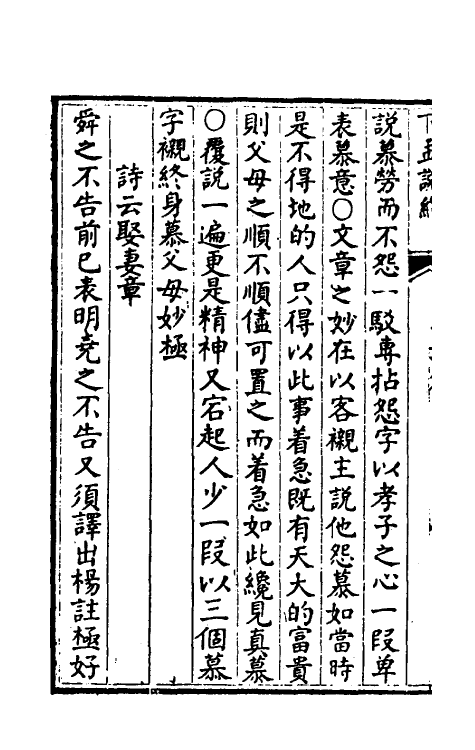 說慕勞而不怨一駁專拈怨字以孝子之心一段單
表慕意〇文章之妙在以客襯主說他怨慕如當時
是不得地的人只得以此事着急既有天大的富貴
則父母之順不順儘可置之而着急如此纔見真慕
〇覆說一遍更是精神又宕起人少一段以三個慕
字襯終身慕父母妙極
詩云娶妻章
舜之不告前已表明堯之不告又須譯出楊註極好